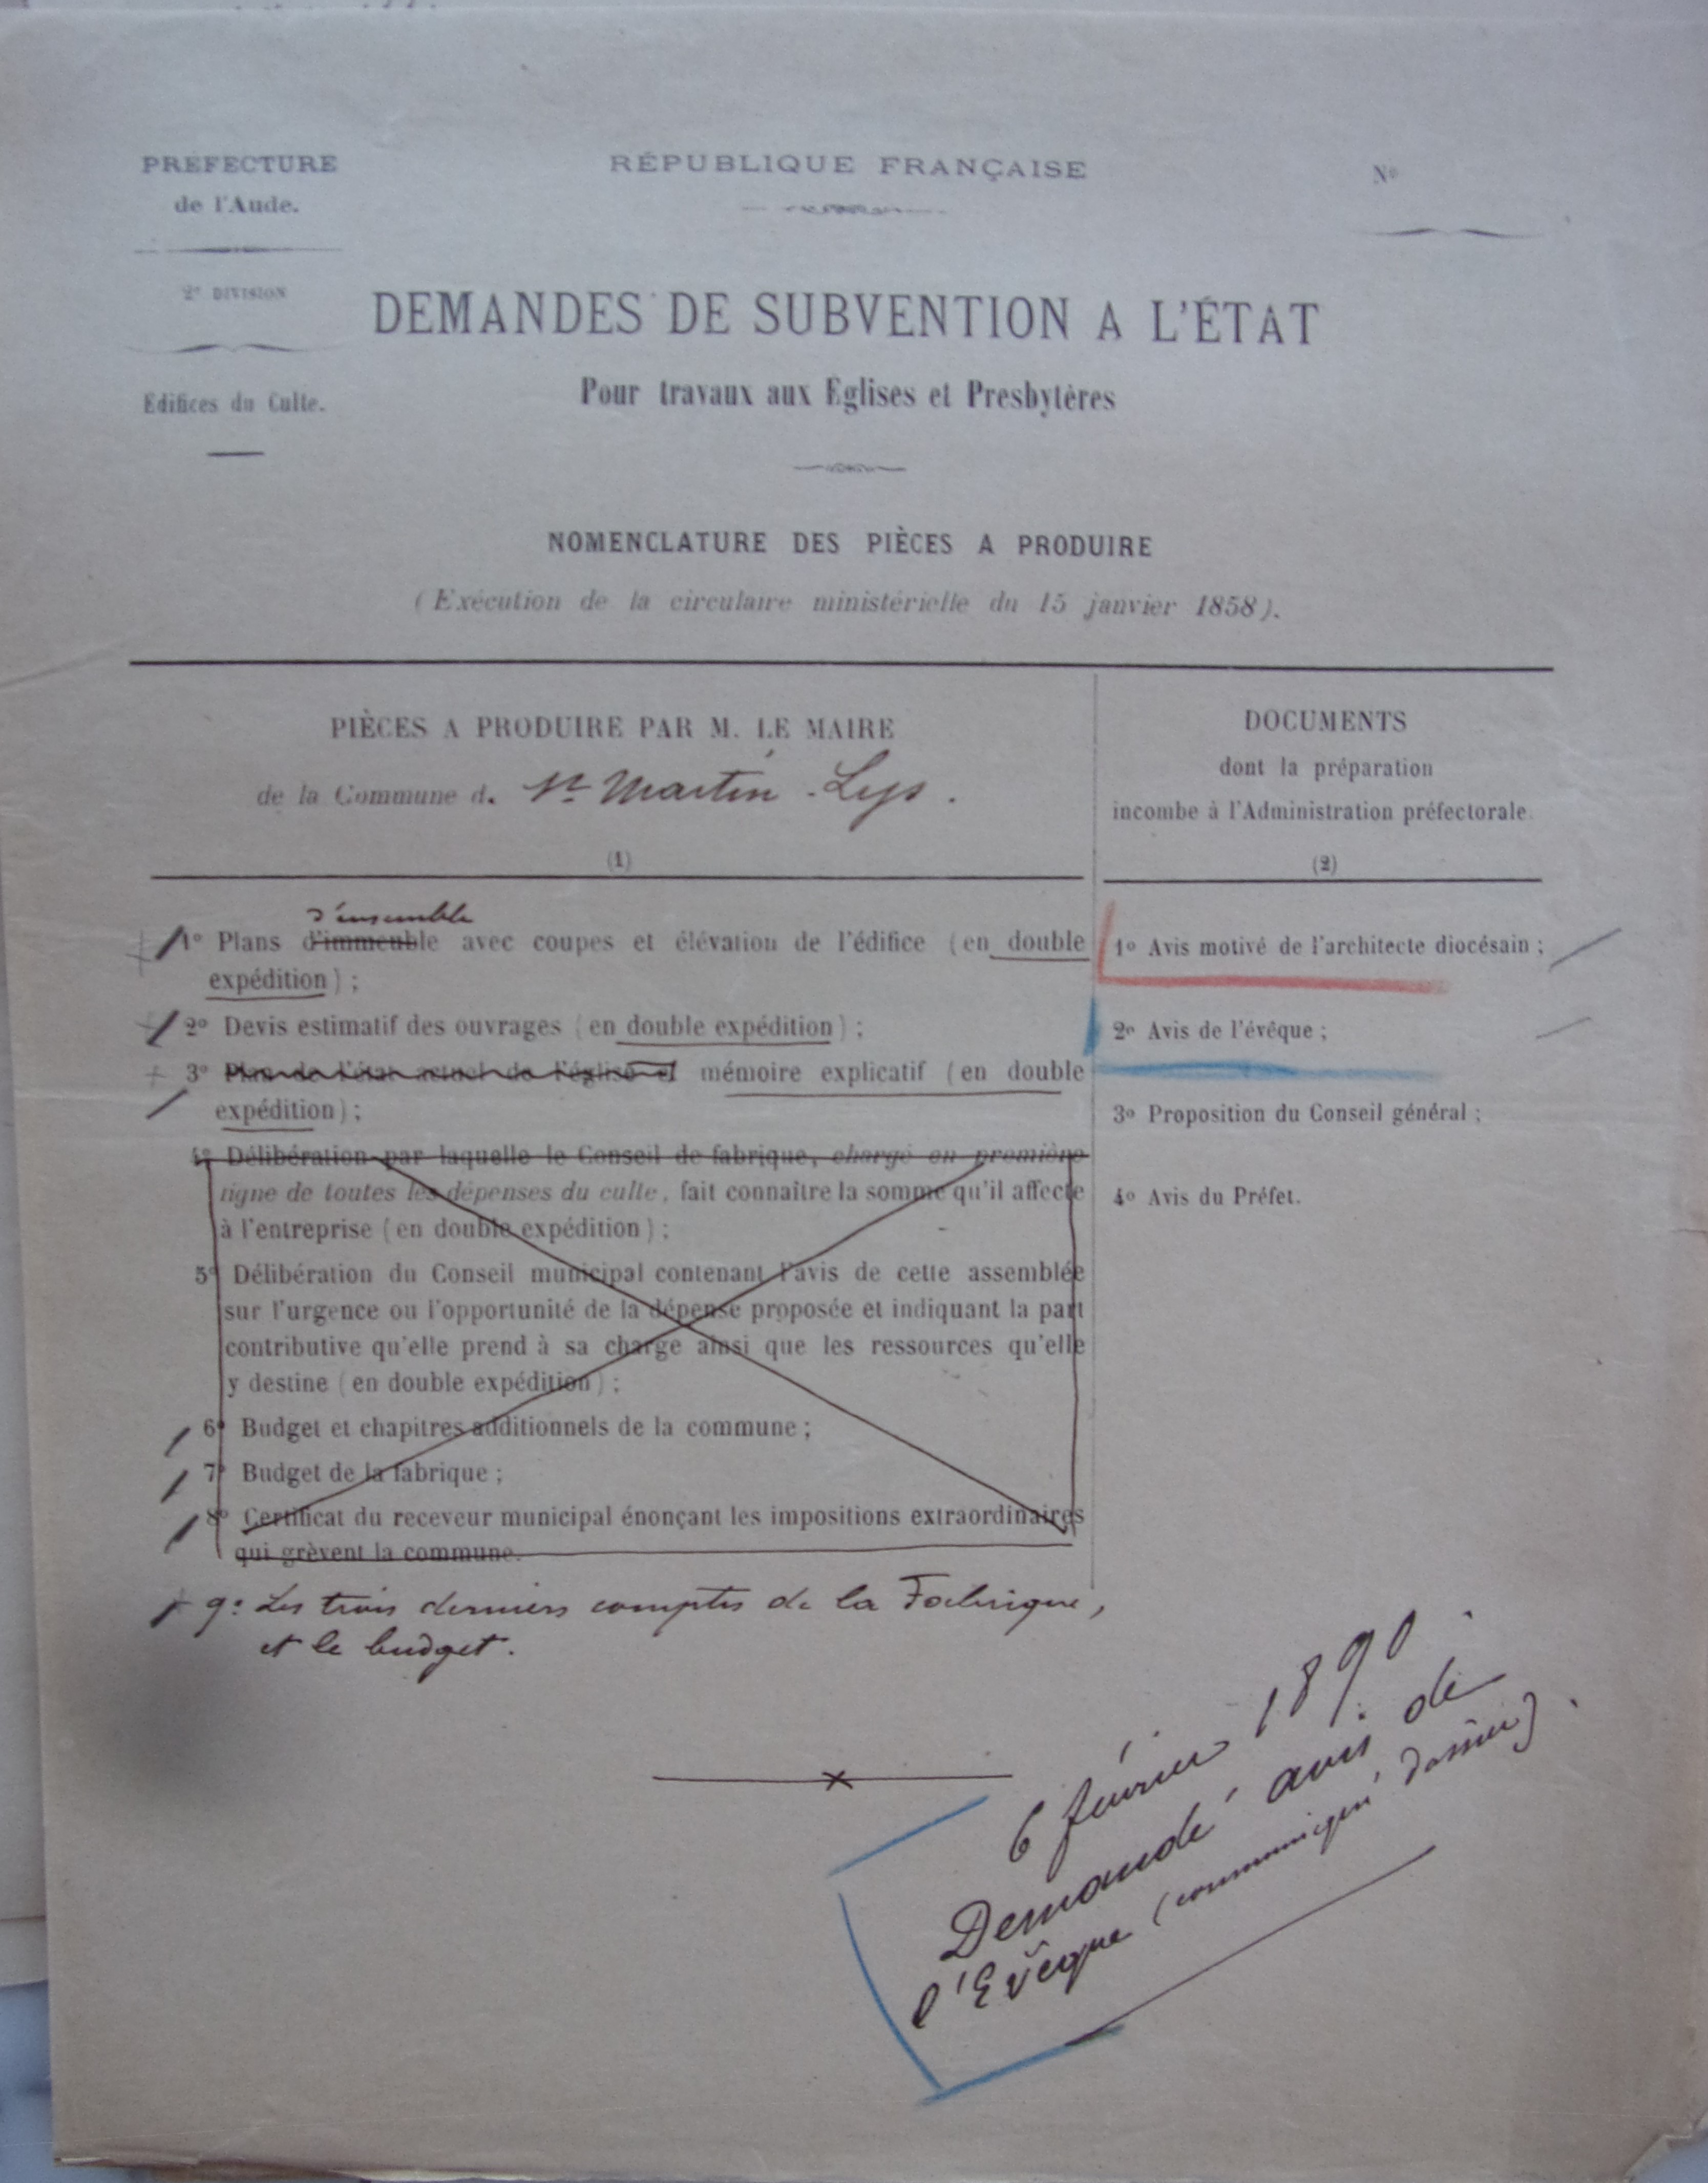 PRÉFECTURE
de l'Aude.
2e DIVISION
Edifices du Culte.
RÉPUBLIQUE FRANÇAISE
No
DEMANDES DE SUBVENTION A L'ÉTAT
Pour travaux aux Eglises et Presbytères
NOMENCLATURE DES PIÈCES A PRODUIRE
(Exécution de la circulaire ministérielle du 15 janvier 1858).
PIÈCES A PRODUIRE PAR M. LE MAIRE
de la Commune d. St Martin-Lys.
(1)
d'ensemble
1o Plans d'immeuble avec coupes et élévation de l'édifice (en double
expédition) ;
2o Devis estimatif des ouvrages (en double expédition) ;
3o Plan de l'état actuel de l'église et mémoire explicatif (en double
expédition) ;
4o Délibération par laquelle le Conseil de fabrique, chargé en première
ligne de toutes les dépenses du culte, fait connaître la somme qu'il affecte
à l'entreprise (en double expédition) ;
5o Délibération du Conseil municipal contenant l'avis de cette assemblée
sur l'urgence ou l'opportunité de la dépense proposée et indiquant la part
contributive qu'elle prend à sa charge ainsi que les ressources qu'elle
y destine (en double expédition) ;
6o Budget et chapitres additionnels de la commune ;
7o Budget de la fabrique ;
8o Certificat du receveur municipal énonçant les impositions extraordinaires
qui grèvent la commune.
9o Les trois derniers comptes de la Fabrique,
et le budget.
DOCUMENTS
dont la préparation
incombe à l'Administration préfectorale.
(2)
1o Avis motivé de l'architecte diocésain ;
2o Avis de l'évêque ;
3o Proposition du Conseil général ;
4o Avis du Préfet.
6 février 1890.
Demandé avis de
l'Evêque (communiqué dossier).